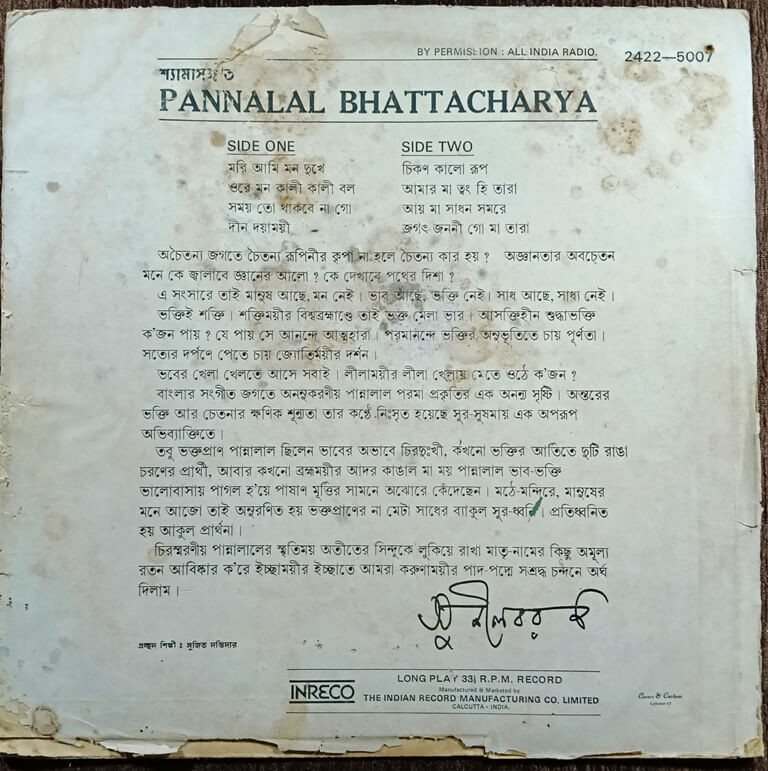 BY PERMISSION : ALL INDIA RADIO.
2422—5007
শ্যামাসঙ্গীত
PANNALAL BHATTACHARYA
SIDE ONE
মরি আমি মন দুখে
ওরে মন কালী কালী বল
সময় তো থাকবে না গো
দীন দয়াময়ী
SIDE TWO
চিকণ কালো রূপ
আমার মা ত্বং হি তারা
আয় মা সাধন সমরে
জগৎ জননী গো মা তারা
অচৈতন্য জগতে চৈতন্য রূপিনীর কৃপা না হলে চৈতন্য কার হয় ? অজ্ঞানতার অবচেতন
মনে কে জ্বালাবে জ্ঞানের আলো ? কে দেখাবে পথের দিশা ?
এ সংসারে তাই মানুষ আছে, মন নেই। ভাব আছে, ভক্তি নেই। সাধ আছে, সাধ্য নেই।
ভক্তিই শক্তি। শক্তিময়ীর বিশ্বব্রহ্মাণ্ডে তাই ভক্ত মেলা ভার। আসক্তিহীন শুদ্ধাভক্তি
ক'জন পায় ? যে পায় সে আনন্দে আত্মহারা। পরমানন্দে ভক্তির অনুভূতিতে চায় পূর্ণতা।
সত্যের দর্পণে পেতে চায় জ্যোতির্ময়ীর দর্শন।
ভবের খেলা খেলতে আসে সবাই। লীলাময়ীর লীলা খেলায় মেতে ওঠে ক'জন ?
বাংলার সংগীত জগতে অননুকরণীয় পান্নালাল পরমা প্রকৃতির এক অনন্য সৃষ্টি। অন্তরের
ভক্তি আর চেতনার ক্ষণিক শূন্যতা তার কণ্ঠে নিঃসৃত হয়েছে সুর-সুষমায় এক অপরূপ
অভিব্যাক্তিতে।
তবু ভক্তপ্রাণ পান্নালাল ছিলেন ভাবের অভাবে চিরদুঃখী, কখনো ভক্তির আর্তিতে দুটি রাঙা
চরণের প্রার্থী, আবার কখনো ব্রহ্মময়ীর আদর কাঙাল মা ময় পান্নালাল ভাব-ভক্তি
ভালোবাসায় পাগল হ'য়ে পাষাণ মূর্ত্তির সামনে অঝোরে কেঁদেছেন। মঠে-মন্দিরে, মানুষের
মনে আজো তাই অনুরণিত হয় ভক্তপ্রাণের না মেটা সাধের ব্যাকুল সুর-ধ্বনি। প্রতিধ্বনিত
হয় আকুল প্রার্থনা।
চিরস্মরণীয় পান্নালালের স্মৃতিময় অতীতের সিন্দুকে লুকিয়ে রাখা মাতৃ-নামের কিছু অমূল্য
রতন আবিষ্কার ক'রে ইচ্ছাময়ীর ইচ্ছাতে আমরা করুণাময়ীর পাদ-পদ্মে সশ্রদ্ধ চন্দনে অর্ঘ
দিলাম।
প্রচ্ছদ শিল্পী : সুজিত দস্তিদার
INRECO
LONG PLAY 33⅓ R.P.M. RECORD
Manufactured & Marketed by
THE INDIAN RECORD MANUFACTURING CO. LIMITED
CALCUTTA - INDIA.